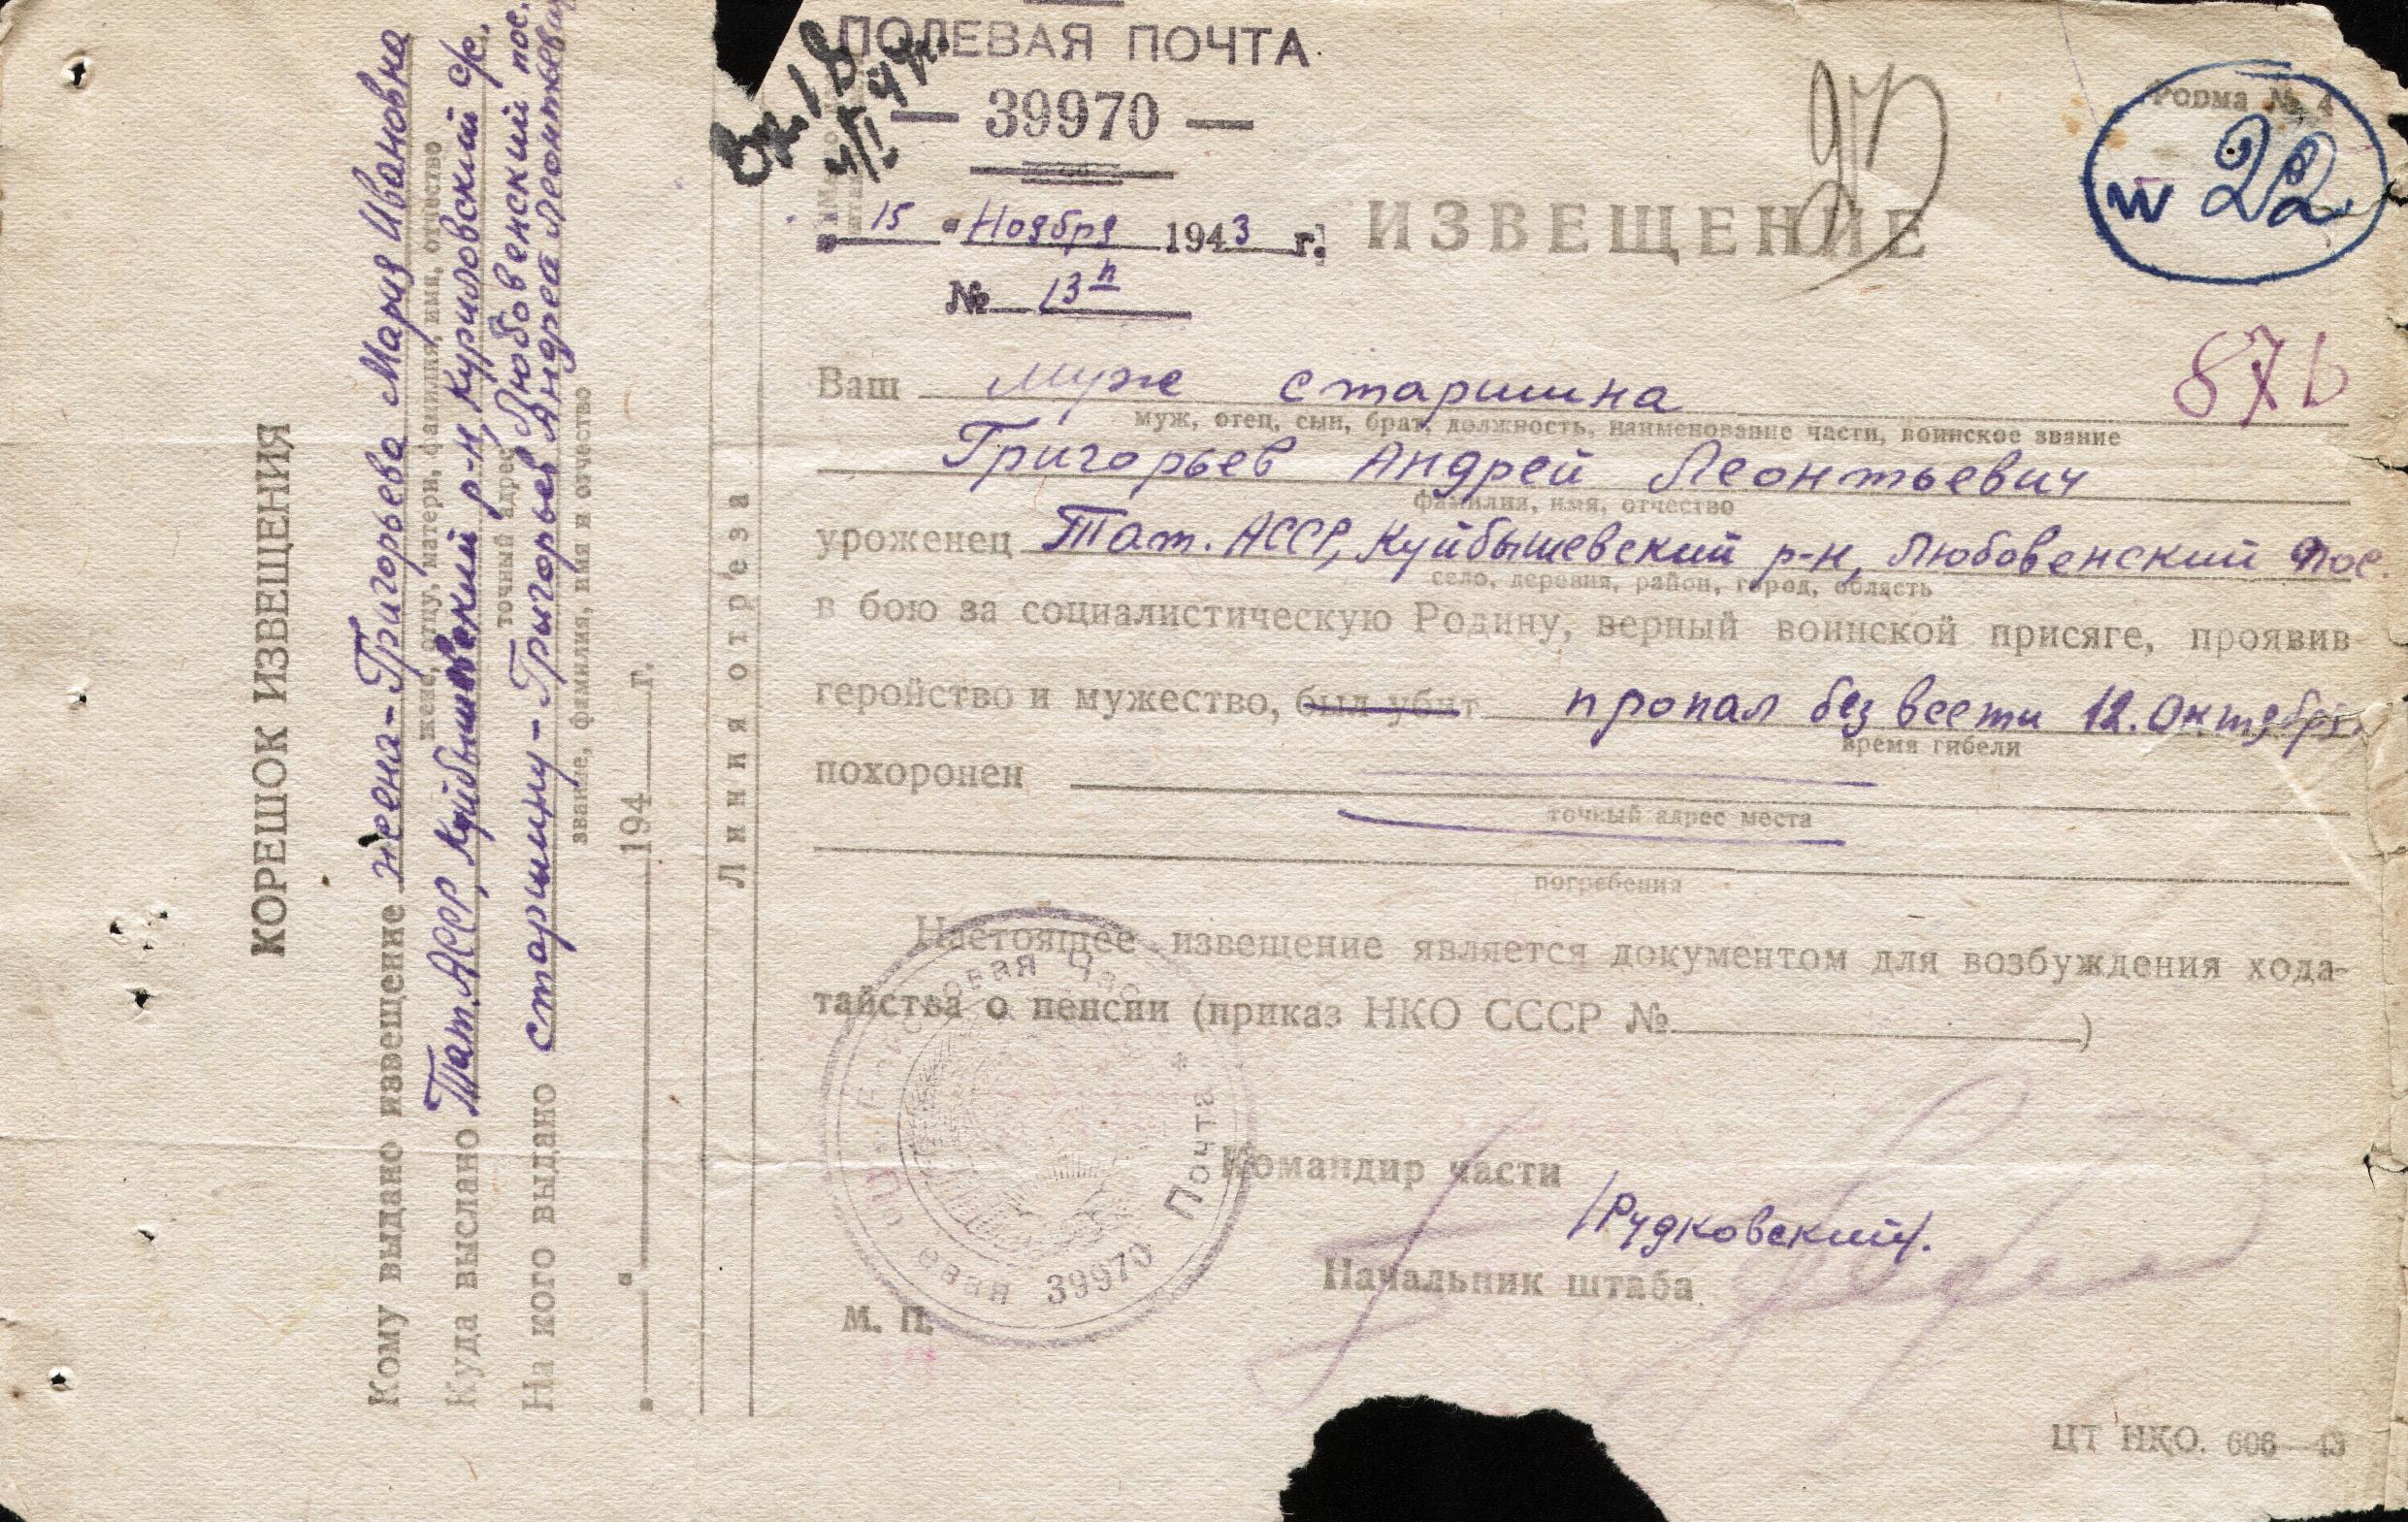 КОРЕШОК ИЗВЕЩЕНИЯ
Кому выдано извещение жена - Григорьева Мария Ивановна
жене, отцу, матери, фамилия, имя, отчество
Куда выслано Тат. АССР, Куйбышевский р-н, Куриловский с/с.
точный адрес Любовенский пос.
На кого выдано старшину - Григорьев Андрей Леонтьевич
звание, фамилия, имя и отчество
194 г.
Линия отреза
ПОЛЕВАЯ ПОЧТА
— 39970 —
Форма № 4
№ 22
„ 15 " Ноября 1943 г.
ИЗВЕЩЕНИЕ
№ 13п
87
Ваш муж старшина
муж, отец, сын, брат, должность, наименование части, воинское звание
Григорьев Андрей Леонтьевич
фамилия, имя, отчество
уроженец Тат. АССР, Куйбышевский р-н, Любовенский пос.
село, деревня, район, город, область
в бою за социалистическую Родину, верный воинской присяге, проявив
геройство и мужество, был убит пропал без вести 12. Октября
время гибели
похоронен
точный адрес места
погребения
Настоящее извещение является документом для возбуждения хода-
тайства о пенсии (приказ НКО СССР № )
Почта
39970
Командир части
/Рудковский/.
Начальник штаба
М. П.
ЦТ НКО. 606—43